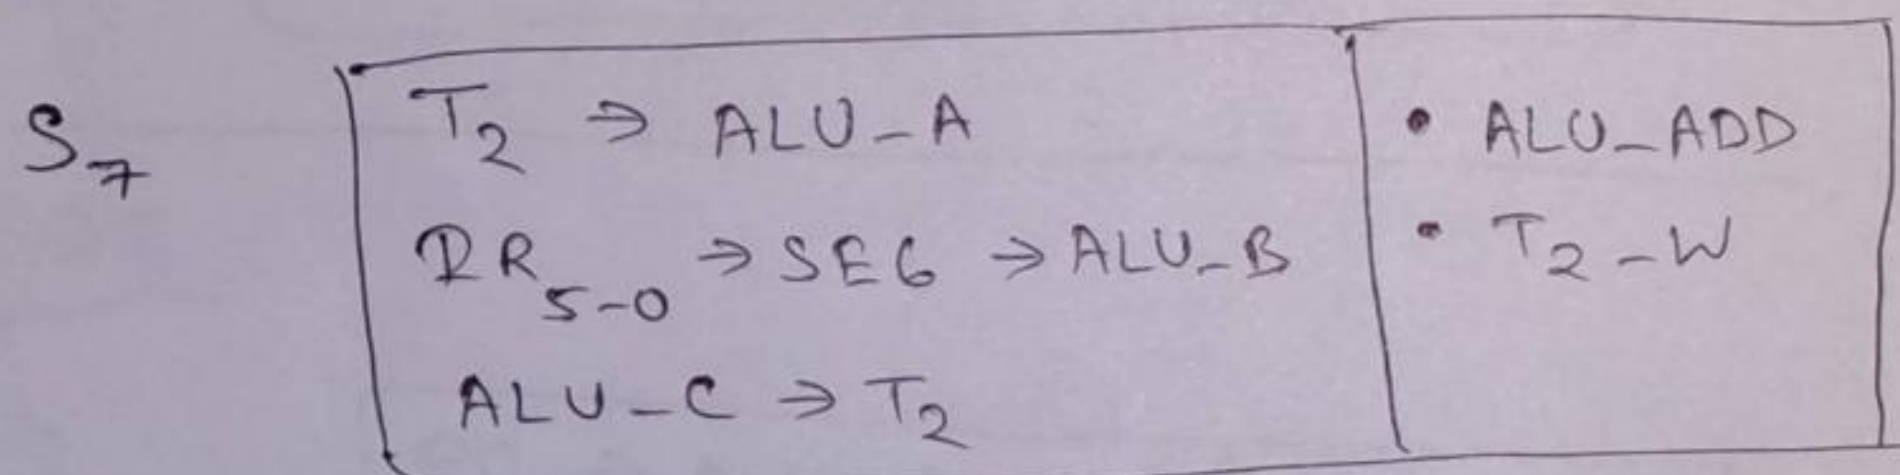 S7
T2 → ALU-A
IR5-0 → SE6 → ALU-B
ALU-C → T2
• ALU_ADD
• T2-W